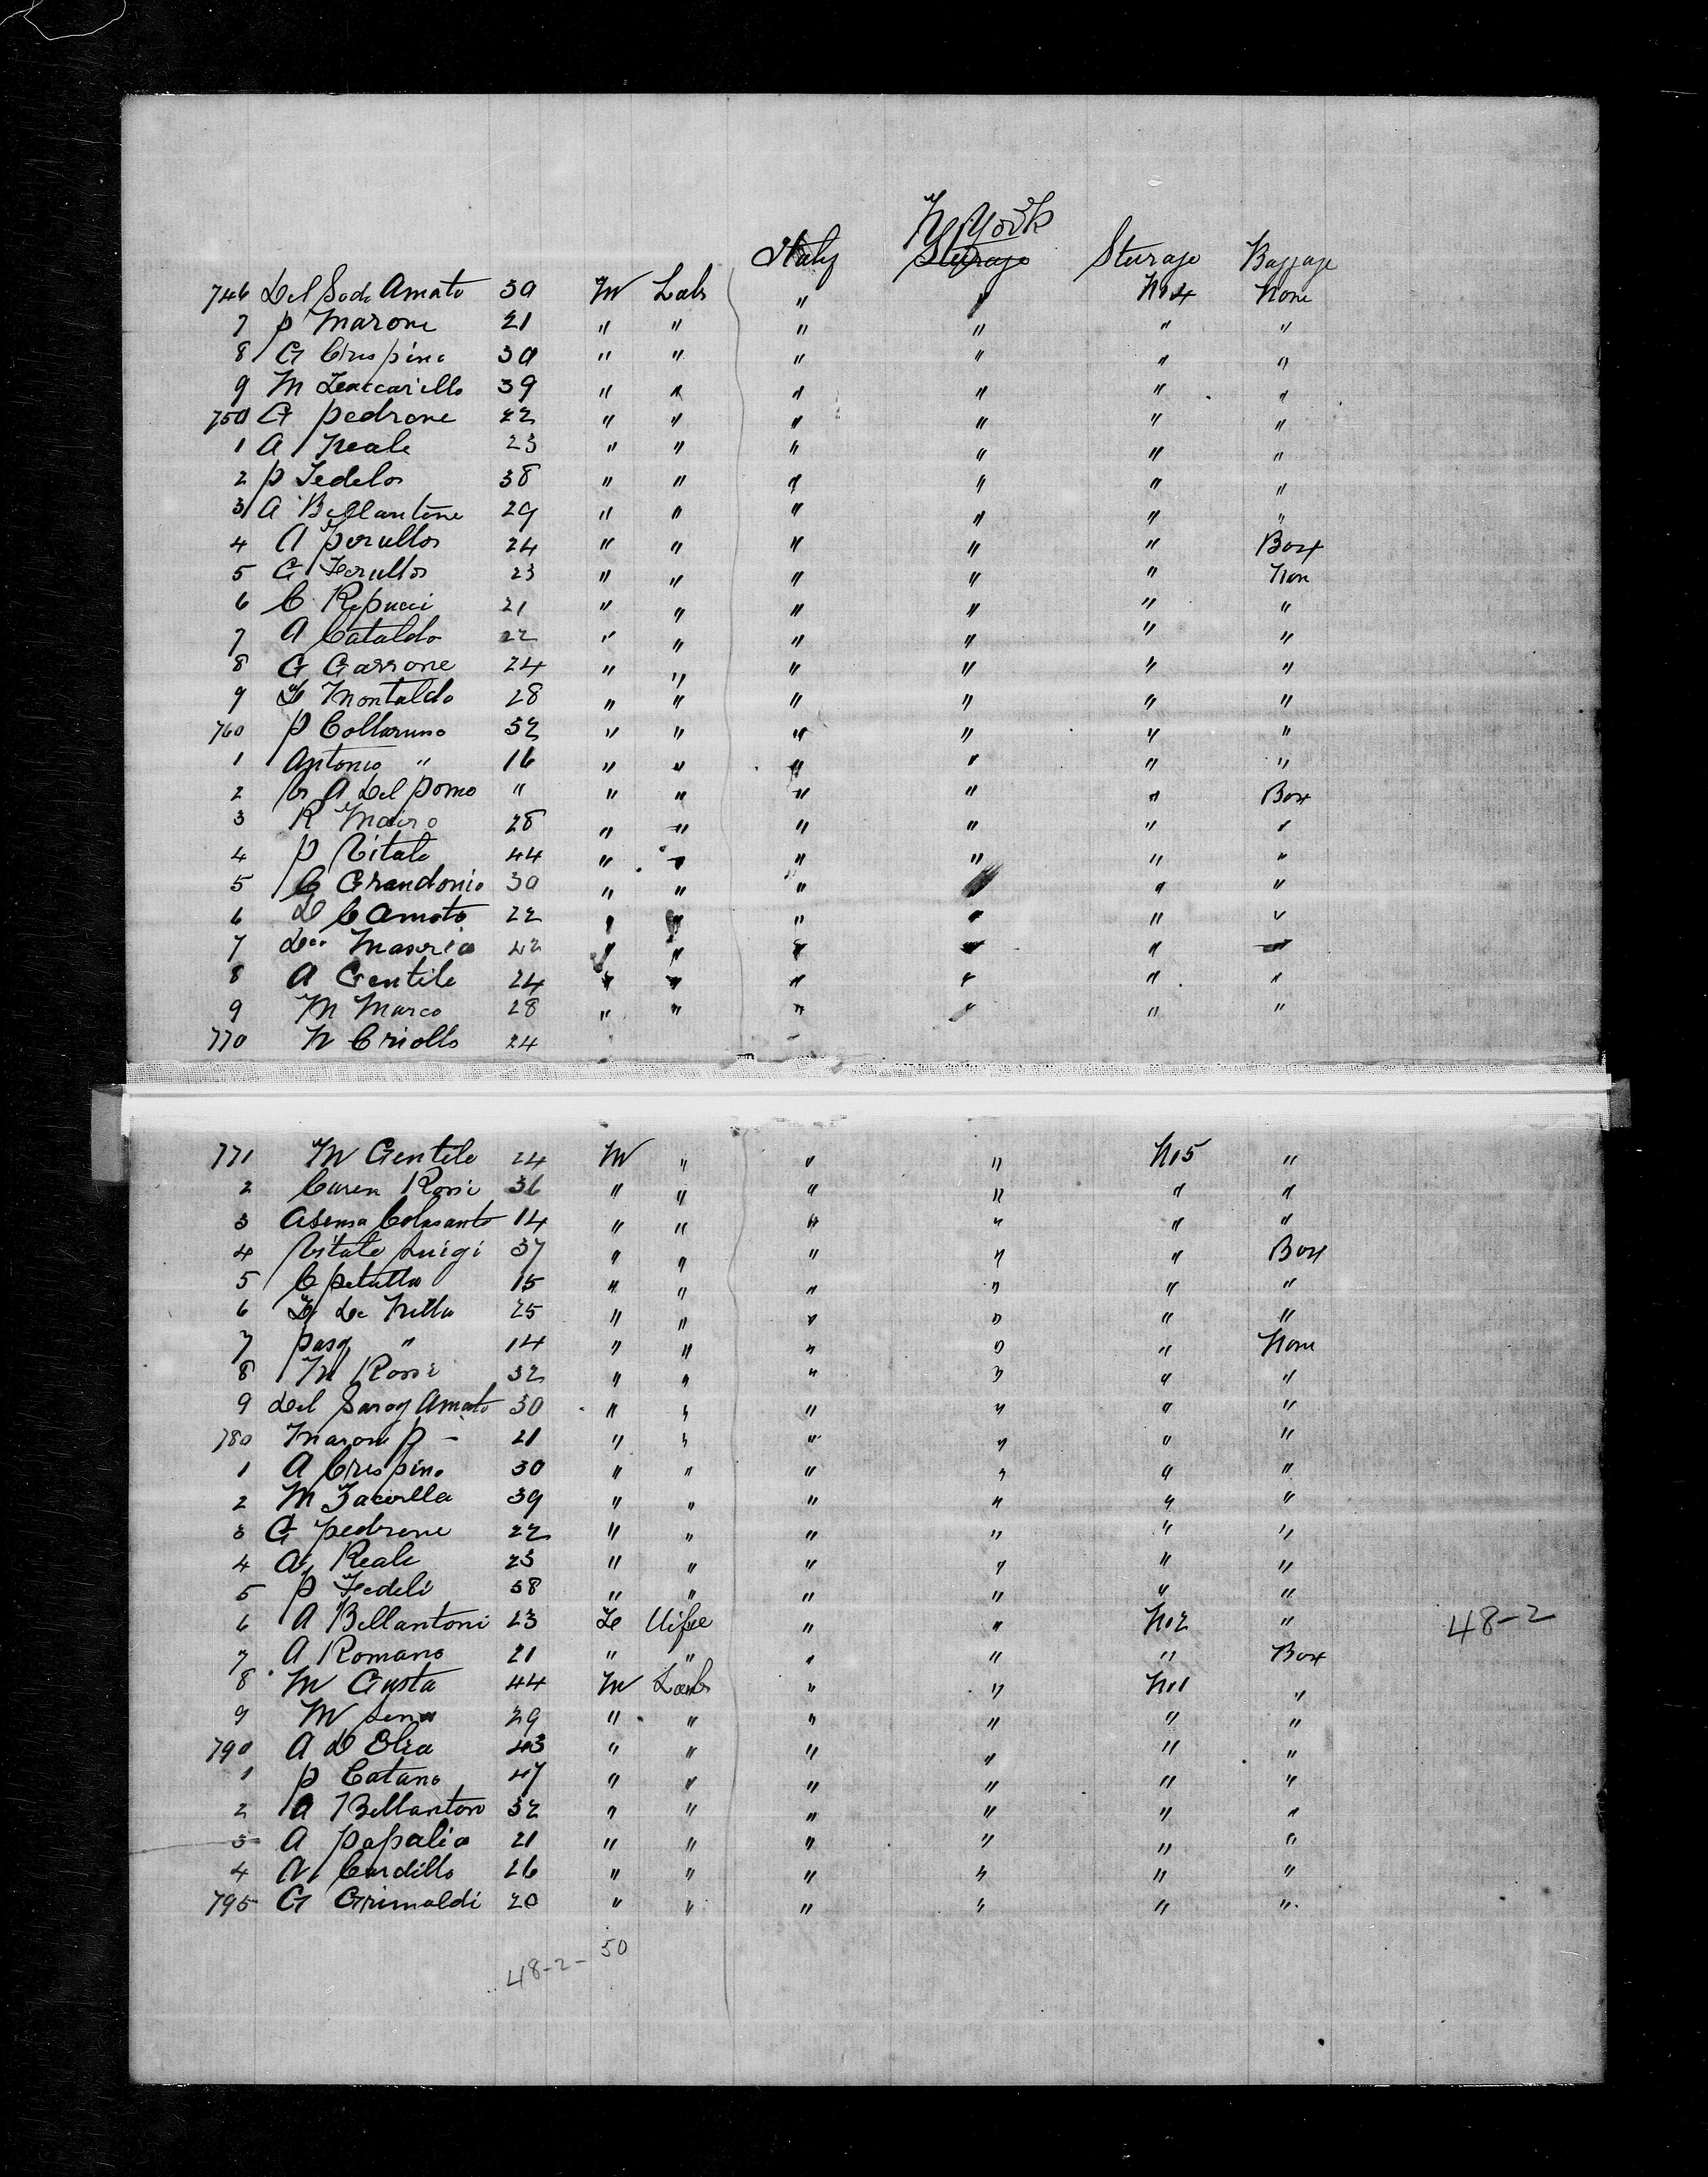 N York
Italy Sturage Sturage Baggage
746 Del Sodo Amato 30 M Lab " " No 4 None
7 P Marone 21 " " " " " "
8 G Crispino 30 " " " " " "
9 M Zaccarillo 39 " " " " " "
750 G Pedrone 22 " " " " " "
1 A Neale 23 " " " " " "
2 P Fedelos 38 " " " " " "
3 A Bellantone 29 " " " " " "
4 A Perullos 24 " " " " " Box
5 G Ferullos 23 " " " " " Non
6 C Repucci 21 " " " " " "
7 A Cataldo 22 " " " " " "
8 G Garrone 24 " " " " " "
9 F Montaldo 28 " " " " " "
760 P Collaruno 52 " " " " " "
1 Antonio " 16 " " " " " "
2 A Del Pomo " " " " " " Box
3 R Mairo 28 " " " " " "
4 P Vitale 44 " " " " " "
5 C Grandonio 30 " " " " " "
6 D C Amato 22 " " " " " "
7 Masoria 42 " " " " " "
8 A Gentile 24 " " " " " "
9 M Marco 28 " " " " " "
770 N Criollo 24
771 M Gentile 24 M " " " No 5 "
2 Rossi 36 " " " " " "
3 Asensa Colasanto 14 " " " " " "
4 Vitale Luigi 37 " " " " " Box
5 C Petulla 15 " " " " " "
6 F De Nella 25 " " " " " "
7 Pasq " 14 " " " " " None
8 M Rossi 32 " " " " " "
9 Del Amato 30 " " " " " "
780 Marone P - 21 " " " " " "
1 A Crispino 30 " " " " " "
2 M Zacorlla 39 " " " " " "
3 G Pedrone 22 " " " " " "
4 A Reale 23 " " " " " "
5 P Fedeli 38 " " " " " "
6 A Bellantoni 23 Fe Wife " " No 2 " 48-2
7 A Romano 21 " " " " " Box
8 M Gusta 44 M Lab " " No 1 "
9 M 29 " " " " " "
790 A D Elia 43 " " " " " "
1 P Catano 47 " " " " " "
2 A Bellanton 32 " " " " " "
3 A Papalia 21 " " " " " "
4 A Cardillo 26 " " " " " "
795 G Grimaldi 20 " " " " " "
48-2-50